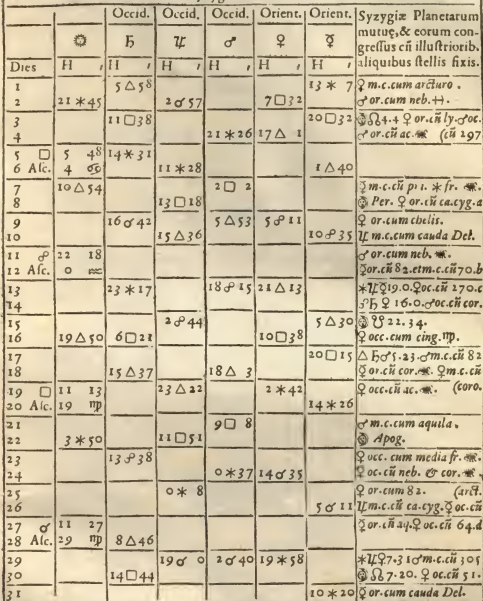 Occid. Occid. Occid. Orient. Orient. Syzygiæ Planetarum
☼ ♄ ♃ ♂ ♀ ☿ mutuę, & eorum con-
gressus cũ illustriorib.
Dies H ′ H ′ H ′ H ′ H ′ H ′ aliquibus stellis fixis.
1 5 △ 58 13 ✶ 7 ♀ m.c. cum arcturo.
2 21 ✶ 45 2 ☌ 57 7 □ 32 ♂ or. cum neb. ♐.
3 11 □ 38 20 □ 32 ☊ 4.4 ♀ or. cũ ly. ♂ oc.
4 21 ✶ 26 17 △ 1 ♂ or. cũ ac. (cũ 297
5 □ 5 48 14 ✶ 31
6 Asc. 4 ♋ 11 ✶ 28 1 △ 40
7 10 △ 54 2 □ 2 ✶ fr.
8 13 □ 18 Per. ♀ or. cũ ca. cyg. a
9 16 ☌ 42 5 △ 53 5 ☍ 11 ♀ or. cum chelis.
10 15 △ 36 10 ☍ 35 ♃ m.c. cum cauda Del.
11 ☍ 22 18 ♂ or. cum neb.
12 Asc. 0 ♒ ☿ or. cũ 82. et m.c. cũ 70. b
13 23 ✶ 17 18 ☍ 15 21 △ 13 ✶ ♃ ☿ 19.0. ♀ oc. cũ 270. c
14 ♂ ♄ ♀ 16.0. ♂ oc. cũ cor.
15 2 ☍ 44 5 △ 30 ☋ 22.34.
16 19 △ 50 6 □ 21 10 □ 38 ♀ occ. cum cing. ♍
17 20 □ 15 △ ♄ ♂ 5.23. ♂ m.c. cũ 82
18 15 △ 37 18 △ 3 ☿ or. cũ cor. ♀ m.c. cũ
19 □ 11 13 23 △ 22 2 ✶ 42 ♀ occ. cũ ac. (coro.
20 Asc. 19 ♍ 14 ✶ 26
21 9 □ 8 ♂ m.c. cum aquila.
22 3 ✶ 50 11 □ 51 Apog.
23 13 ☍ 38 ♀ occ. cum media fr.
24 0 ✶ 37 14 ☌ 35 ♀ oc. cũ neb. & cor.
25 0 ✶ 8 ♀ or. cum 82. (arct.
26 5 ☌ 11 ♃ m.c. cũ ca. cyg. ☿ oc. cũ
27 ☌ 11 27 ☿ or. cũ aq. ♀ oc. cũ 64. d
28 Asc. 29 ♍ 8 △ 46
29 19 ☌ 0 2 ☌ 40 19 ✶ 58 ✶ ♃ ♀ 7.31 ♂ m.c. cũ 305
30 14 □ 44 ☊ 7.20. ♀ oc. cũ 51.
31 10 ✶ 20 ♀ or. cum cauda Del.